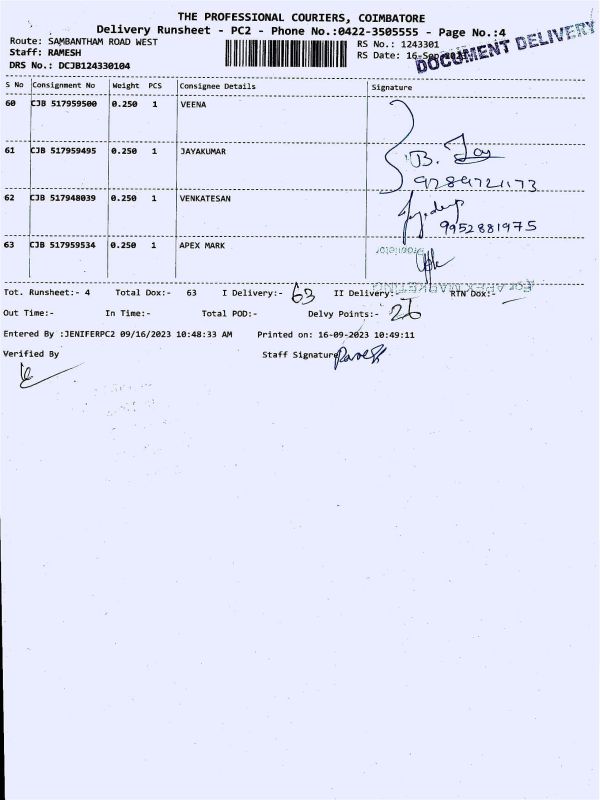 THE PROFESSIONAL COURIERS, COIMBATORE
Delivery Runsheet - PC2 - Phone No.:0422-3505555 - Page No.:4
Route: SAMBANTHAM ROAD WEST
RS No.: 1243301
Staff: RAMESH
RS Date: 16-Sep
DOCUMENT DELIVERY
DRS No.: DCJB124330104
S No Consignment No Weight PCS Consignee Details Signature
60 CJB 517959500 0.250 1 VEENA
61 CJB 517959495 0.250 1 JAYAKUMAR
B. Jay
9789721173
62 CJB 517948039 0.250 1 VENKATESAN
9952881975
63 CJB 517959534 0.250 1 APEX MARK
Proprietor
For APEX MARKETING
Tot. Runsheet:- 4 Total Dox:- 63 I Delivery:- 63 II Delivery:- RTN Dox:-
Out Time:- In Time:- Total POD:- Delvy Points:- 26
Entered By :JENIFERPC2 09/16/2023 10:48:33 AM Printed on: 16-09-2023 10:49:11
Verified By Staff Signature